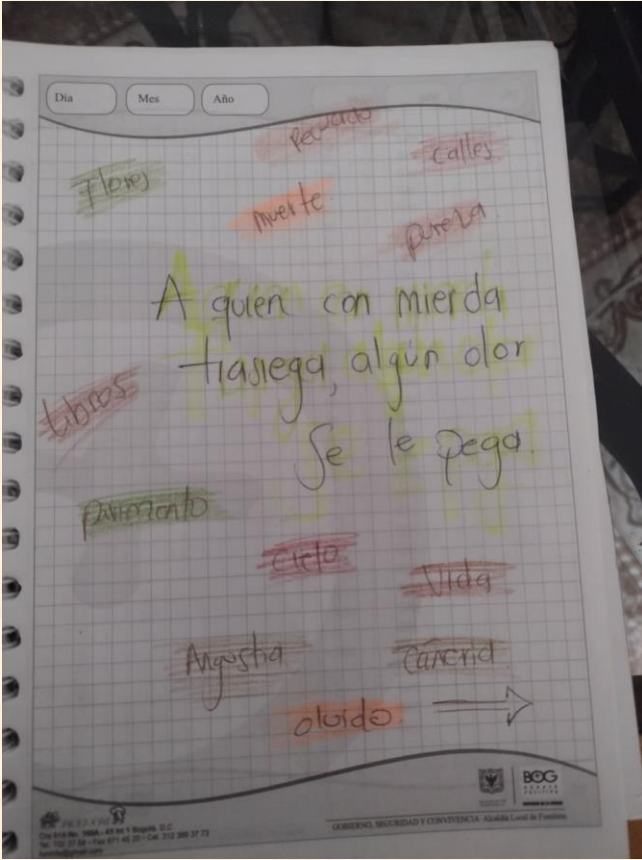 Dia Mes Año
Flores
calles
muerte
pureza
A quien con mierda
trasiega, algún olor
se le pega.
Libros
pavimento
cielo
Vida
Angustia
olvido
BOG
GOBIERNO, SEGURIDAD Y CONVIVENCIA Alcaldía Local de Fontibón